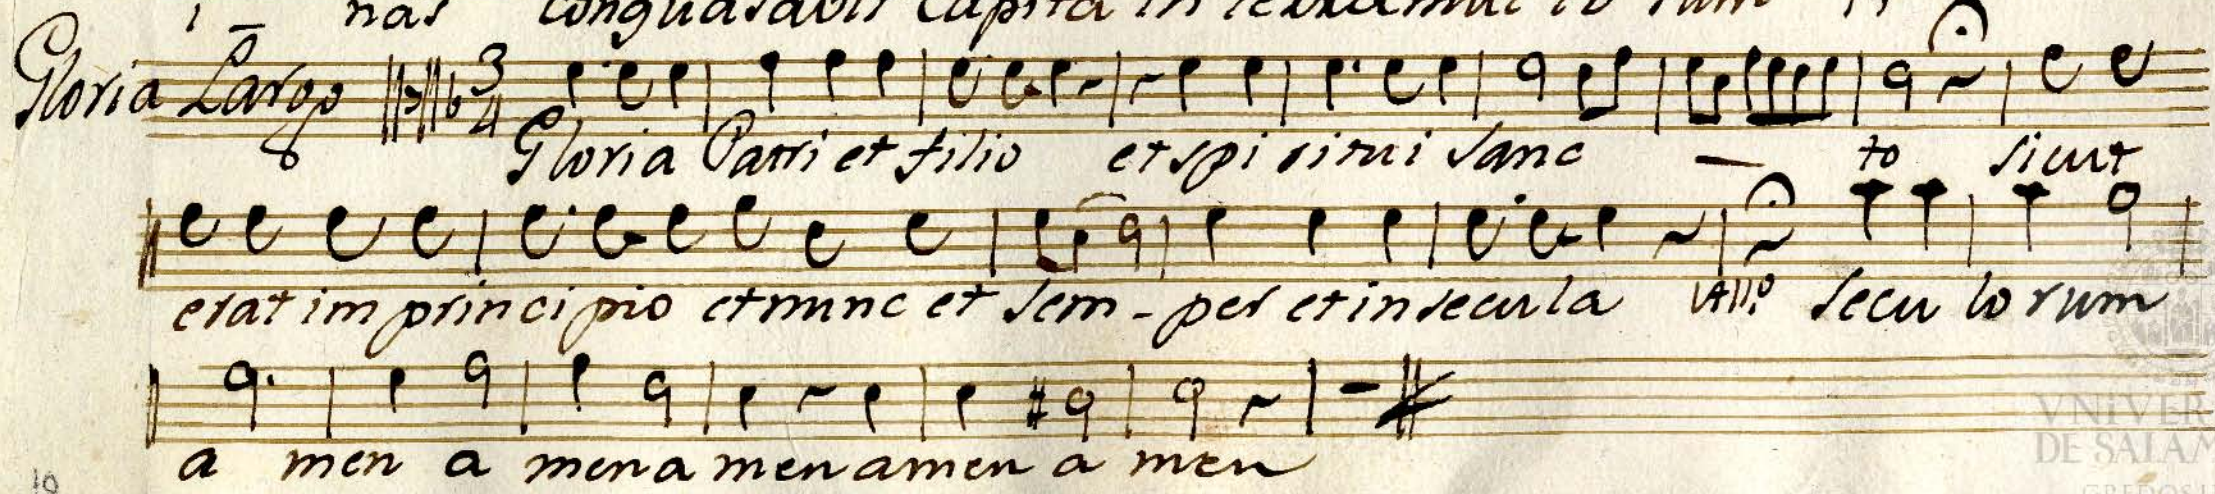 i - nas conquasabit capita in terra mul to rum
Gloria Largo 3 4
Gloria Patri et filio et spi ritui Sanc — to sicut
erat im principio et nunc et sem - per et in secula All.º secu lo rum
a men a men a men amen a men
19
VNIVER
DE SALAM
GREDOS.U